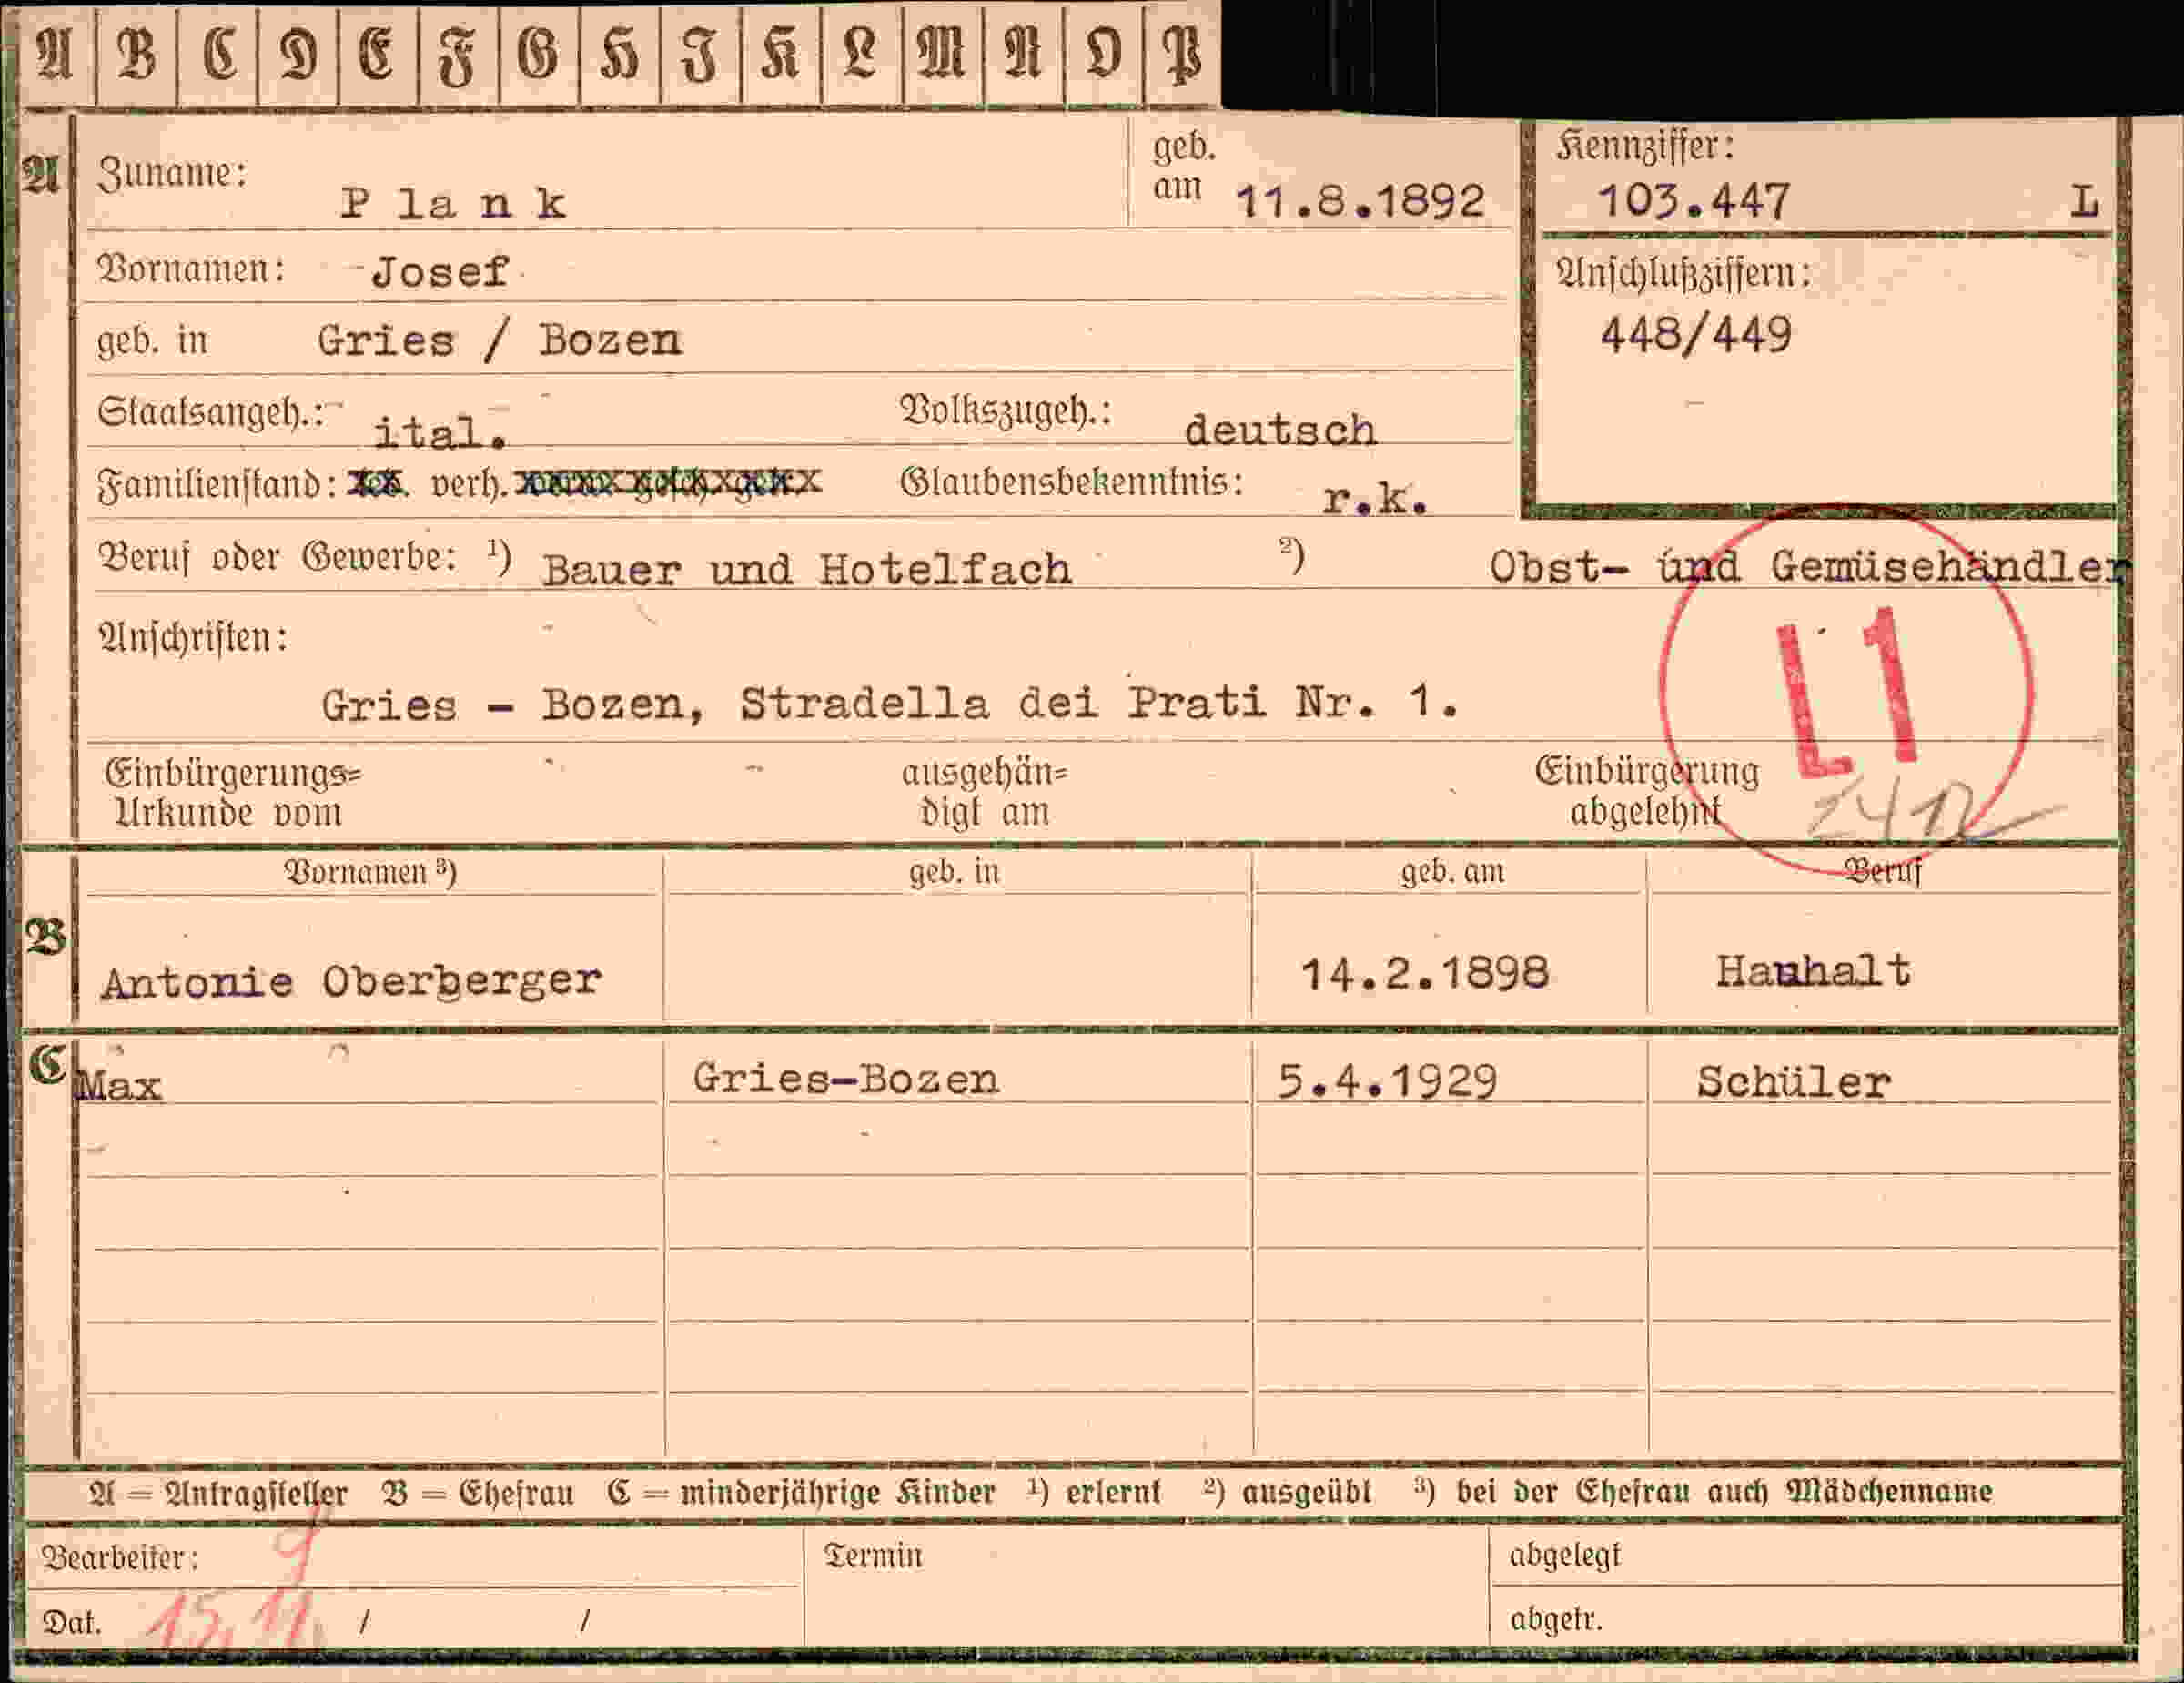 A B C D E F G H I K L M N O P
A Zuname: Plank geb. am 11.8.1892 Kennziffer: 103.447 L
Vornamen: Josef Anschlußziffern:
geb. in Gries / Bozen 448/449
Staatsangeh.: ital. Volkszugeh.: deutsch
Familienstand: verh. Glaubensbekenntnis: r.k.
Beruf oder Gewerbe: ¹) Bauer und Hotelfach ²) Obst- und Gemüsehändler
Anschriften:
L1
Gries - Bozen, Stradella dei Prati Nr. 1.
Einbürgerungs= ausgehän= Einbürgerung
Urkunde vom digt am abgelehnt
Vornamen ³) geb. in geb. am Beruf
B
Antonie Oberberger 14.2.1898 Hauhalt
C Max Gries-Bozen 5.4.1929 Schüler
A = Antragsteller B = Ehefrau C = minderjährige Kinder ¹) erlernt ²) ausgeübt ³) bei der Ehefrau auch Mädchenname
Bearbeiter: Termin abgelegt
Dat. 15.11 / / abgetr.